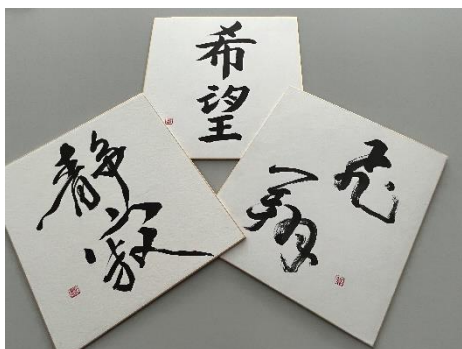 希望
静寂
飛翔